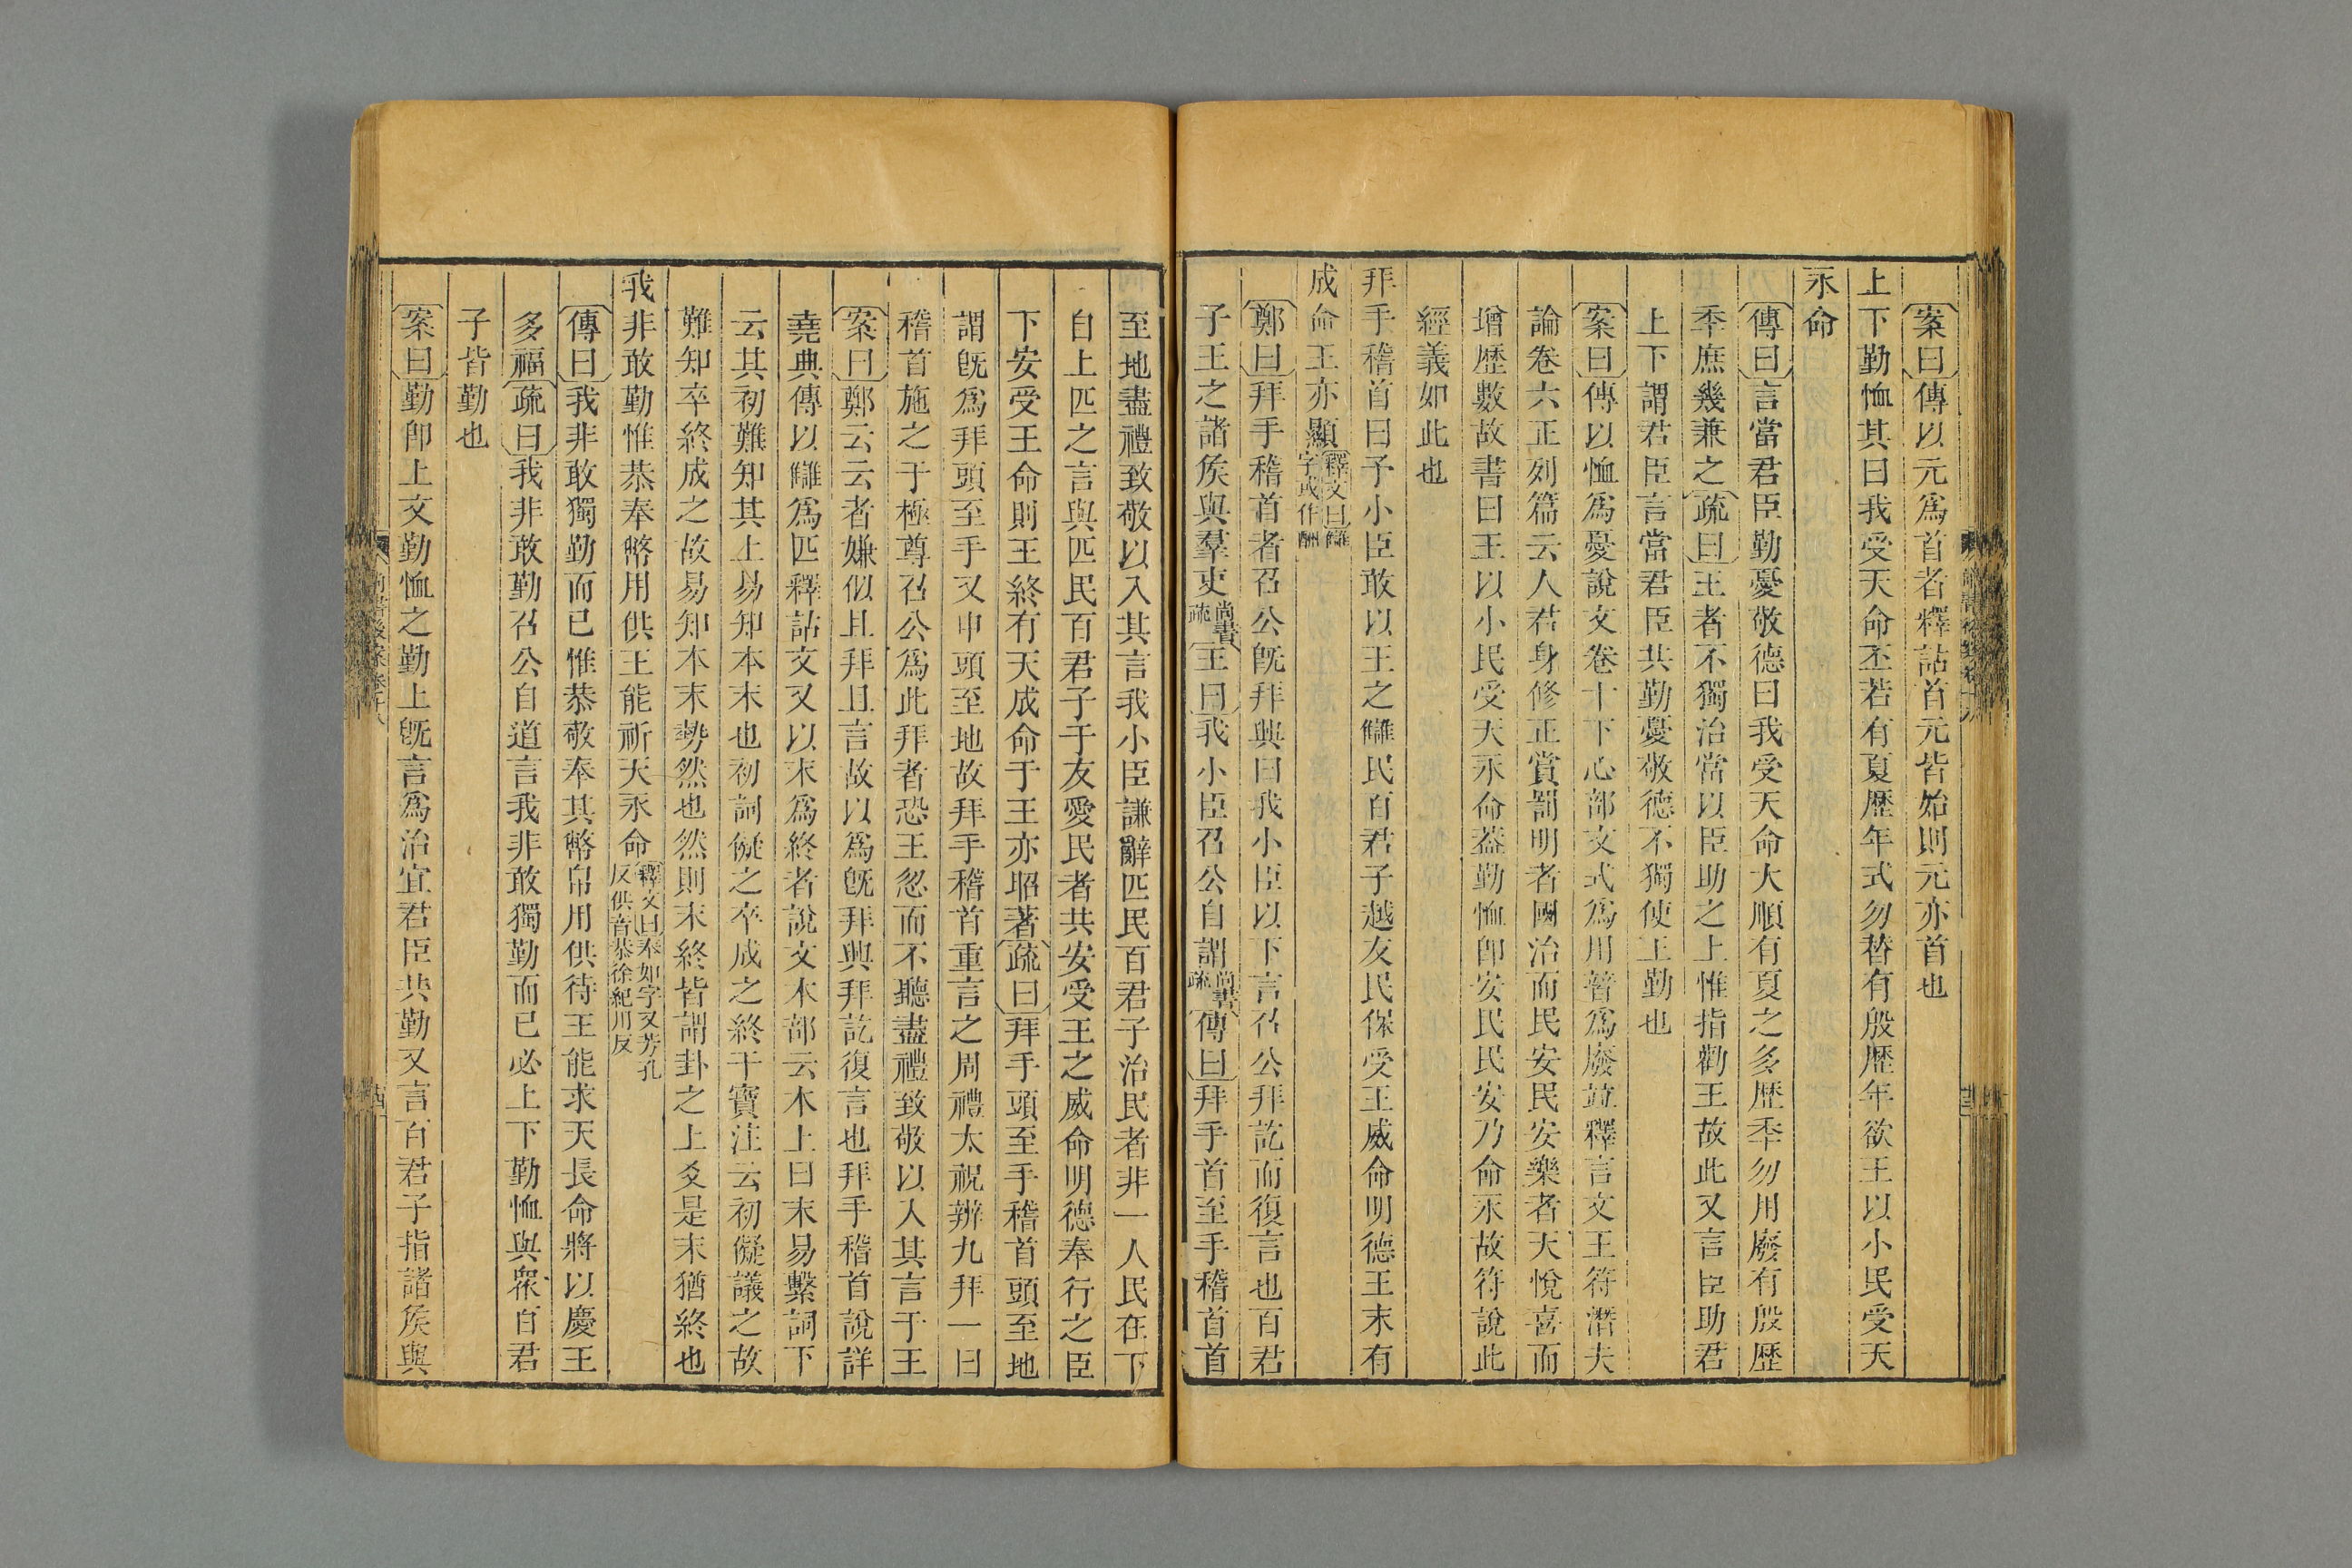 案曰傳以元爲首者釋詁首元皆始則元亦首也
上下勤恤其曰我受天命丕若有夏歷年式勿替有殷歷年欲王以小民受天
永命
傳曰言當君臣勤憂敬德曰我受天命大順有夏之多歷秊勿用廢有殷歷
秊庶幾兼之疏曰王者不獨治當以臣助之上惟指勸王故此又言臣助君
上下謂君臣言當君臣共勤憂敬德不獨使王勤也
案曰傳以恤爲憂說文卷十下心部文式爲用替爲廢竝釋言文王符潛夫
論卷六正列篇云人君身修正賞罰明者國治而民安民安樂者天悅喜而
增歷數故書曰王以小民受天永命葢勤恤卽安民民安乃命永故符說此
經義如此也
拜手稽首曰予小臣敢以王之讎民百君子越友民保受王威命明德王末有
成命王亦顯釋文曰讎
字或作酬
鄭曰拜手稽首者召公旣拜興曰我小臣以下言召公拜訖而復言也百君
子王之諸矦與羣吏尚書
疏王曰我小臣召公自謂尚書
疏傳曰拜手首至手稽首首
至地盡禮致敬以入其言我小臣謙辭匹民百君子治民者非一人民在下
自上匹之言與匹民百君子于友愛民者共安受王之威命明德奉行之臣
下安受王命則王終有天成命于王亦昭著疏曰拜手頭至手稽首頭至地
謂旣爲拜頭至手又申頭至地故拜手稽首重言之周禮太祝辨九拜一曰
稽首施之于極尊召公爲此拜者恐王忽而不聽盡禮致敬以入其言于王
案曰鄭云云者嫌似且拜且言故以爲旣拜興拜訖復言也拜手稽首說詳
堯典傳以讎爲匹釋詁文又以末爲終者說文木部云木上曰末易繫詞下
云其初難知其上易知本末也初詞儗之卒成之終干寶注云初儗議之故
難知卒終成之故易知本末勢然也然則末終皆謂卦之上爻是末猶終也
我非敢勤惟恭奉幣用供王能祈天永命釋文曰奉如字又芳孔
反供音恭徐紀用反
傳曰我非敢獨勤而已惟恭敬奉其幣帛用供待王能求天長命將以慶王
多福疏曰我非敢勤召公自道言我非敢獨勤而已必上下勤恤與衆百君
子皆勤也
案曰勤卽上文勤恤之勤上旣言爲治宜君臣共勤又言百君子指諸矦與